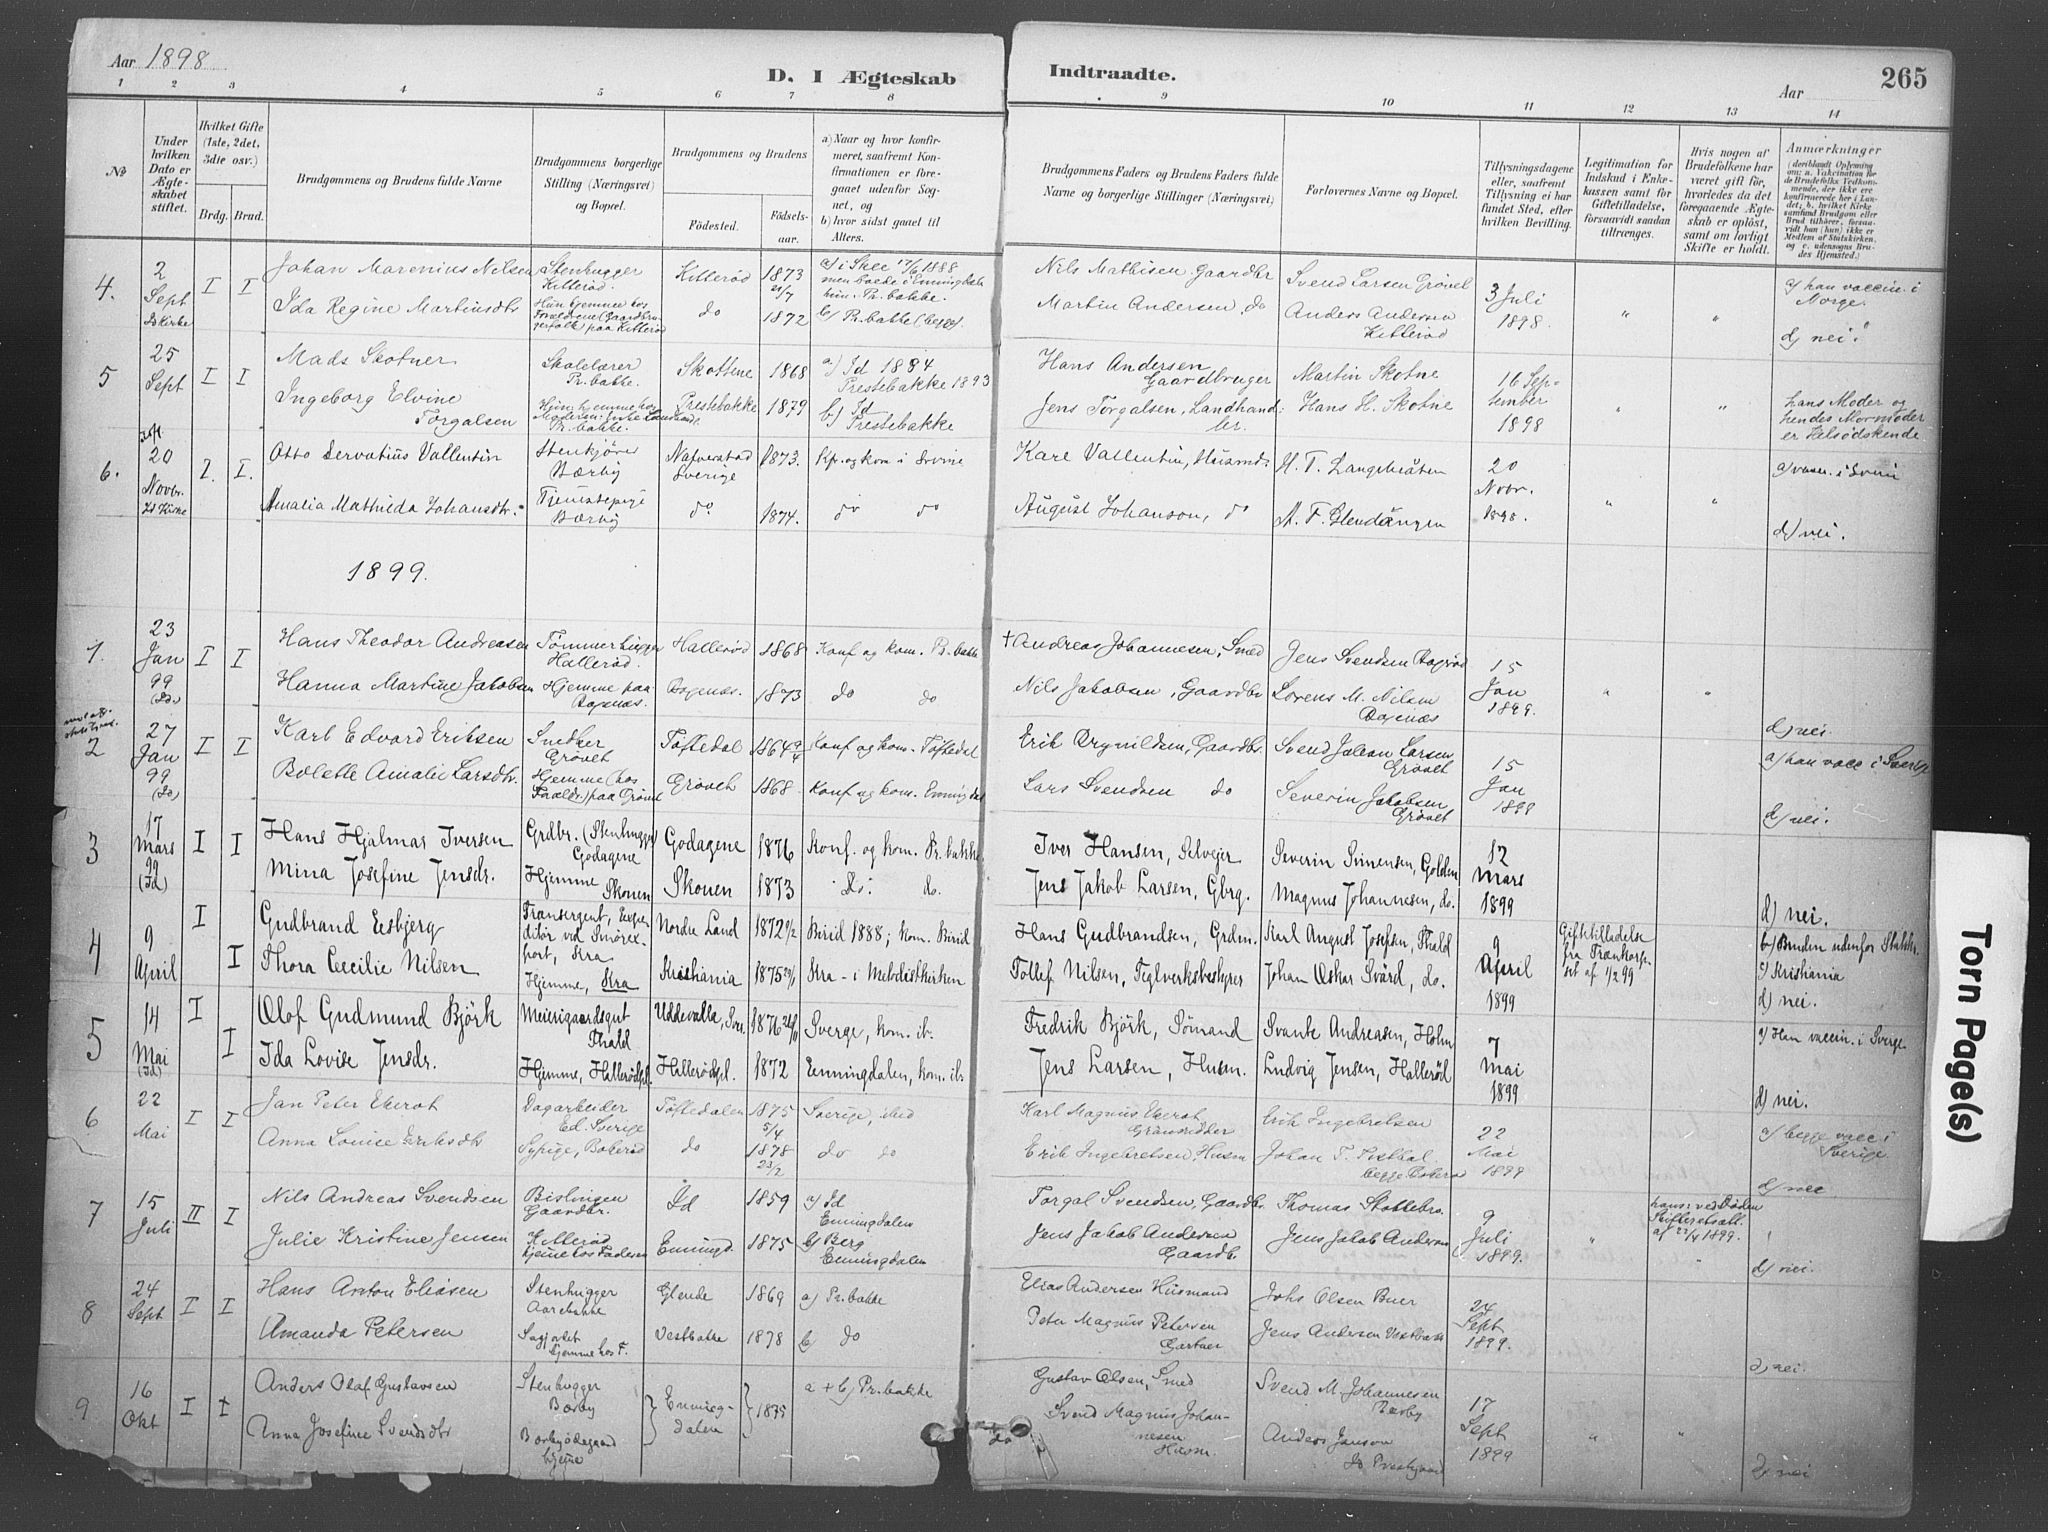 Aar 1898
D. I Ægteskab Indtraadte.
Aar
265
1 2 3 4 5 6 7 8 9 10 11 12 13 14
№
Under hvilken Dato er Ægteskabet stiftet.
Hvilket Gifte (1ste, 2det, 3die osv.)
Brdg. Brud.
Brudgommens og Brudens fulde Navne
Brudgommens borgerlige Stilling (Næringsvei) og Bopæl.
Brudgommens og Brudens
Fødested. Fødselsaar.
a) Naar og hvor konfirmeret, saafremt Konfirmationen er foregaaet udenfor Sognet, og
b) hvor sidst gaaet til Alters.
Brudgommens Faders og Brudens Faders fulde Navne og borgerlige Stillinger (Næringsvei)
Forlovernes Navne og Bopæl.
Tillysningsdagene eller, saafremt Tillysning ei har fundet Sted, efter hvilken Bevilling.
Legitimation for Indskud i Enkekassen samt for Giftetilladelse, forsaavidt saadan tiltrænges.
Hvis nogen af Brudefolkene har været gift før, hvorledes da det foregaaende Ægteskab er opløst, samt om lovligt Skifte er holdt.
Anmærkninger
4. 2 Sept Id Kirke I I
Johan Marenius Nilsen Stenhugger Kitterød. Kitterød 1873 21/7 a) i Skee 17/6 1888
Nils Mathisen Gaardbr Svend Larsen Grövel 3 Juli 1898. " " a) han vaccin. i Norge.
Ida Regine Martinsdtr Hun hjemme hos Forældrene (Gaardbrugerfolk paa Kitterød do 1872 b) Pr.bakke (begge).
Martin Andersen, do Anders Andersen Kitterød d) nei.
5 25 Sept I I
Mads Skotner Skolelærer Pr.bakke. Skottene 1868 a) Id 1884 Prestebakke 1893
Hans Andersen Gaardbruger Martin Skotne 16 September 1898 " "
Ingeborg Elvine Torgalsen Prestebakke 1879 b) Id Prestebakke
Jens Torgalsen, Landhandbr. Hans H. Skotne hans Moder og hendes Mormoder er Helsødskende
6. 20 Novbr. Id Kirke I. I.
Otto Servatius Vallentin Stenkjører Bærby Naverstad Sverige 1873.
Karl Vallentin, Husmd. 20 Novbr. 1898. " " a) vacc. i Sverige
Amalia Mathilda Johansdtr. Tjenestepige Bærby do 1874. do do
August Johanson, do d) nei.
1899.
1. 23 Jan 99 (Id) I I
Hans Theodor Andreasen Tømmerhugger Hallerød. Hallerød 1868 Konf og kom. Pr.bakke
† Andreas Johannesen, Smed Jens Svendsen 15 Jan 1899. " "
Hanna Martine Jakobsen Hjemme paa Bogenæs. Bogenæs. 1873 do do
Nils Jakobsen, Gaardbr Lorens M. Nilsen Bogenæs d) nei.
2 27 Jan 99 (Id) I I
Karl Edvard Eriksen Snedker Grövet Töftedal 1864 9/4 Konf og kom. Töftedal
Erik Gaardbr. Svend Johan Larsen Grövet 15 Jan 1899 a) han vacc i Sverige
Bolette Amalie Larsdtr. Hjemme (hos Foreldr.) paa Grövet Grövet 1868 Konf og kom. Enningdal
Lars Svendsen do Severin Jakobsen Grövet d) nei.
3 17 Mars 99 (Id) I I
Hans Hjalmar Iversen Grdbr. (Stenhugger) Godagene Godagene 1876 Konf. og kom. Pr.bakke
Iver Hansen, Selvejer Severin Simensen, Golden 12 Mars 1899
Mina Josefine Jensdr. Hjemme Skonen Skonen 1873 do. do.
Jens Jakob Larsen, Gbrg. Magnus Johannesen, do. d) nei.
4 9 April I I
Gudbrand Eesbjerg Nordre Land 1872 21/2 Birid 1888; kom. Birid
Hans Gudbrandsen, Grdm. Karl August Josefsen, Thald 9 April 1899 Giftetilladelse fra Trænkorpset af 1/2 99 b) Bruden udenfor Statsk.
Thora Cecilie Nilsen Hjemme, Kra Kristiania 1875 Kra - i Metodistkirken
Tollef Nilsen, Teglverksbestyrer Johan Oskar Svärd, do. c) Kristiania
d) nei.
5 14 Mai (Id) I I
Olof Gudmund Björk Meierigaardsgut Thald Uddevalla, Sver. 1876 Sverge, kom. ib.
Fredrik Björk, Sömand Svante Andreasen, Holm 7 Mai 1899 a) Han vaccin. i Sverge
Ida Lovise Jensdr. Hjemme, Hallerødpl. Hallerødpl. 1872 Enningdalen, kom. ib.
Jens Larsen, Husm. Ludvig Jensen, Hallerød d) nei.
6 22 Mai I I
Jan Peter Ekerot Dagarbeider Ed. Sverige Töftedalen 1875 5/4 Sverige, ibid
Karl Magnus Ekerot Erik Ingebretsen 22 Mai 1899 a) begge vacc i Sverige.
Anna Louise Eriksdtr Sypige, Bokerød do 1878 23/2 do do
Erik Ingebretsen, Husm Johan T. d) nei
7 15 Juli II I
Nils Andreas Svendsen Bislingen Gaardbr. Id 1859 a) Id Enningdalen
Torgal Svendsen, Gaardbr. Thomas Stottebro. 9 Juli 1899. " hans: ved Døden Skifteretsatt. af 22/4 1899.
Julie Kristine Jensen Kitterød hjeme hos Faderen Enningd. 1875 b) Berg Enningdalen
Jens Jakob Andersen Gaardb. Jens Jakob Andersen d) nei.
8 24 Sept I I
Hans Anton Eliasen Stenhugger Aarebakke Glende 1869 a) Pr.bakke
Elias Andersen Husmand Johs Olsen Buer 24 Sept 1899.
Amanda Petersen hjemme hos F. Vestbakke 1878 b) do
Peter Magnus Petersen Gartner Jens Andersen Vestbakk d) nei.
9 16 Okt I I
Anders Olaf Gustavsen Stenhugger Bærby Enningdalen 1875 a + b) Pr.bakke
Gustav Olsen, Smed Svend M. Johannesen Bærby 17 Sept 1899 " "
Anna Josefine Svendsdtr Bærbyødegaard hjeme
do Svend Magnus Johannesen Husm. Anders Janson d) nei
Torn Page(s)